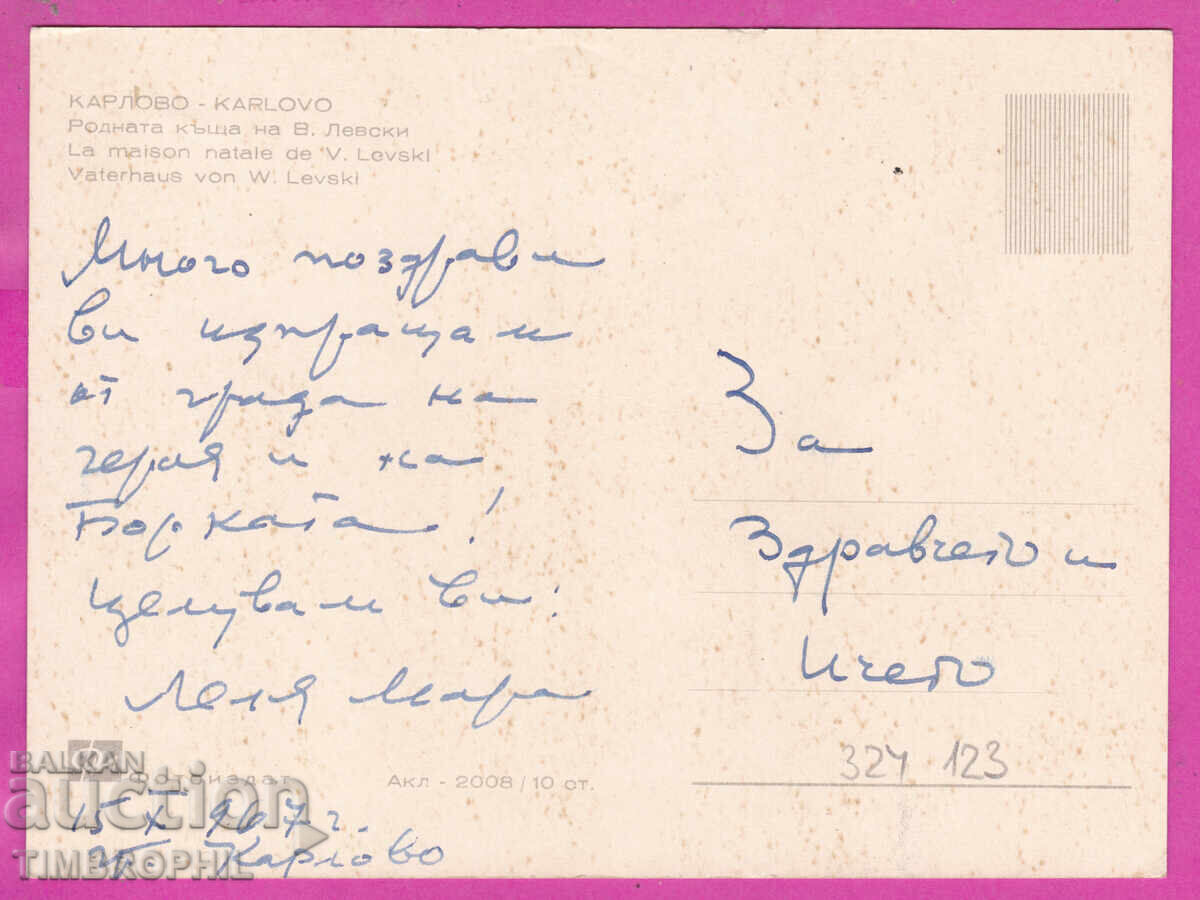 КАРЛОВО - KARLOVO
Родната къща на В. Левски
La maison natale de V. Levski
Vaterhaus von W. Levski
Много поздрави
ви изпращам
от града на
героя и на
Борката!
Целувам ви:
Леля Мара
За
Здравчето и
Ичето
324 123
Фотоиздат
Акл - 2008/10 ст.
15 X 967 г.
гр. Карлово
BALKAN
auction
TIMBROPHIL